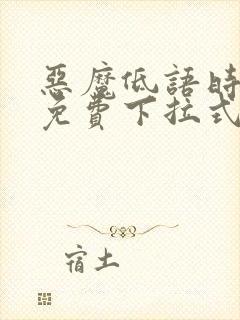 惡魔低語時
免費下拉式
宿土